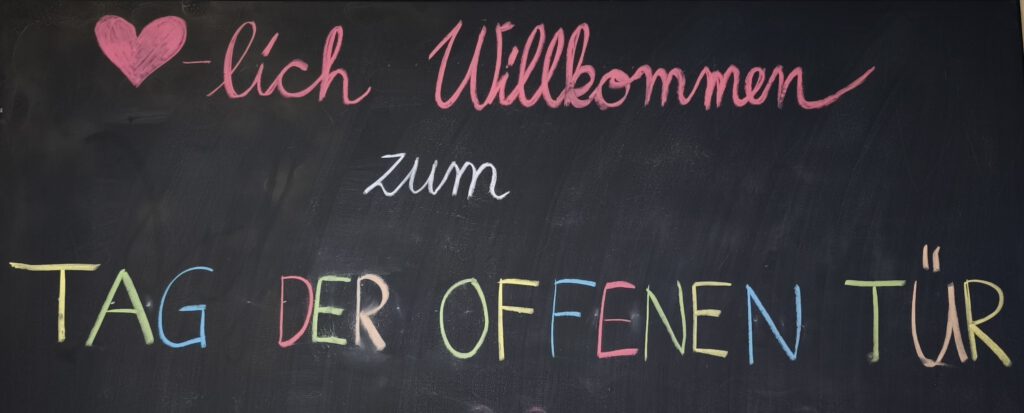 ♥-lich Willkommen
zum
TAG DER OFFENEN TÜR